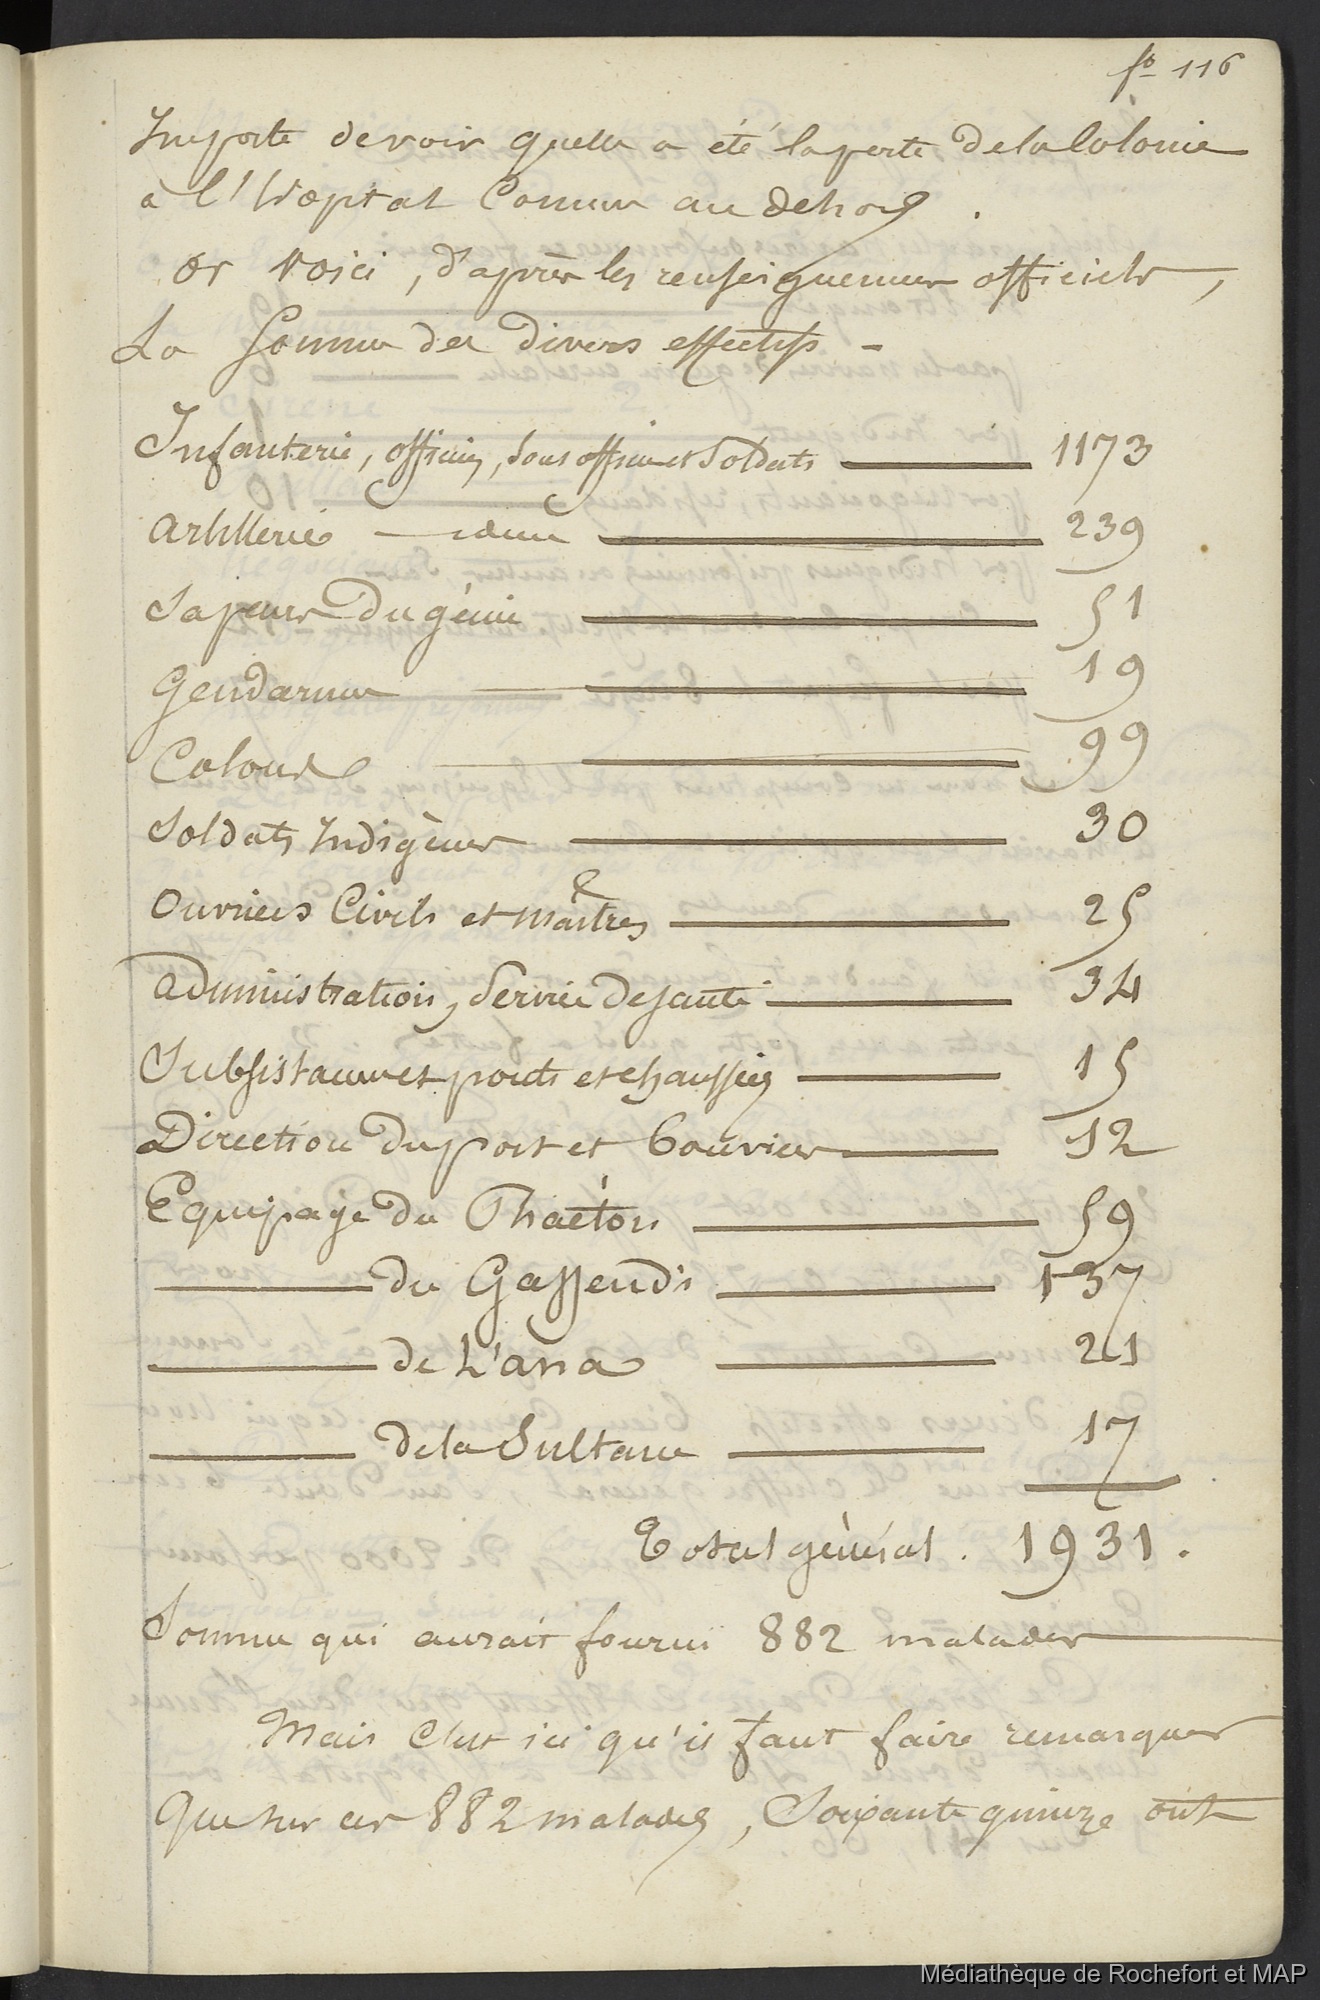 fo 116
Importe de voir quelle a été la perte de la Colonie
à l'hôpital Comme au dehors.
or voici, d'après les renseignemens officiels,
La Somme des divers effectifs -
Infanterie, officiers, sous officiers et soldats 1173
artillerie — idem 239
Sapeurs du génie 51
Gendarmes 19
Colons 99
Soldats Indigènes 30
Ouvriers Civils et maîtres 25
administration, service de santé 34
Subsistances et ponts et chaussées 15
Direction du port et bouviers 12
Equipage du Phaéton 59
— du Gassendi 137
— de L'ana 21
— de la Sultane 17
Total général. 1931.
Somme qui aurait fourni 882 malades
Mais c'est ici qu'il faut faire remarquer
que sur ces 882 malades, Soixante quinze ont
Médiathèque de Rochefort et MAP